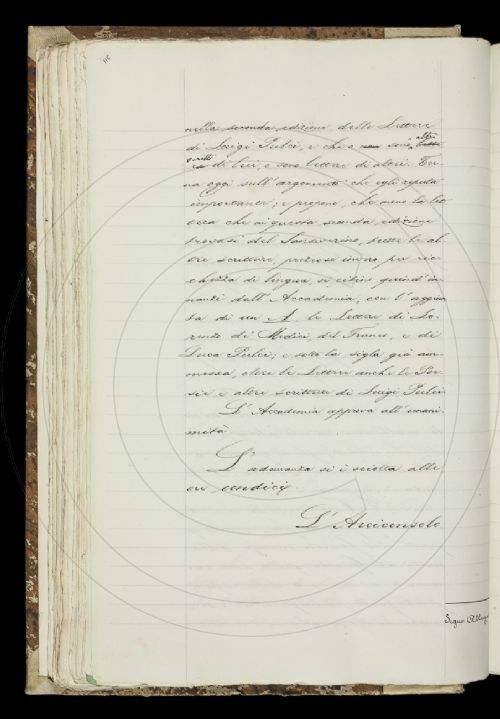 nella seconda edizione delle Lettere
di Luigi Pulci, e che o sono altri
scritti di lui, o sono lettere di altri. Tor-
na oggi sull'argomento che egli reputa
importante; e propone, che meno la let-
tera che in questa seconda edizione
trovasi del Sanseverino, tutte le al-
tre scritture, preziose invero per ric-
chezza di lingua si citino quind' in-
nanzi dall'Accademia, con l'aggiun-
ta di un A le Lettere di Lo-
renzo di Medici, del Franco, e di
Luca Pulci; e sotto la sigla già am-
messa, oltre le Lettere anche le Poe-
sie e altre scritture di Luigi Pulci.
L'Accademia approva all'unani-
mità.
L'adunanza si è sciolta alle
ore undici.
L'Arciconsolo
Segue Alleg